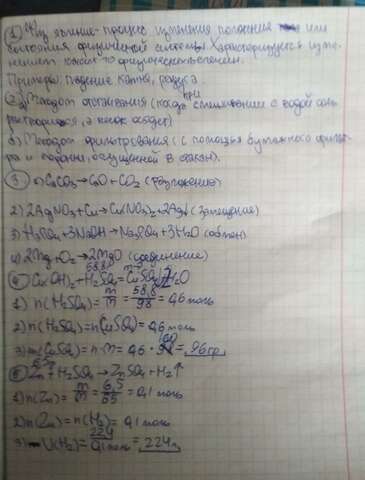 1) Физ явление-процесс изменения положения или
состояния физической системы. Характеризуется изме-
нением
Примеры: падение камня, радуга.
2 а) Методом отстаивания (песок при смешивании с водой соль
растворится, а песок осядет)
б) Методом фильтрования (с помощью бумажного фильт-
ра и воронки, опущенной в стакан).
3. CaCO₃→CaO+CO₂ (разложение)
2) 2AgNO₃+Cu→Cu(NO₃)₂+2Ag↓ (замещение)
3) H₃PO₄+3NaOH→Na₃PO₄+3H₂O (обмен)
4) 2Mg+O₂→2MgO (соединение)
58,8
4 Cu(OH)₂+H₂SO₄=CuSO₄+2H₂O
1) n(H₂SO₄)=m/M=58,8/98=0,6 моль
2) n(H₂SO₄)=n(CuSO₄)=0,6 моль
3) m(CuSO₄)=n·M=0,6·160=96 гр
6,5
5 Zn+H₂SO₄→ZnSO₄+H₂↑
1) n(Zn)=m/M=6,5/65=0,1 моль
2) n(Zn)=n(H₂)=0,1 моль
3) V(H₂)=22,4/0,1 моль=224л